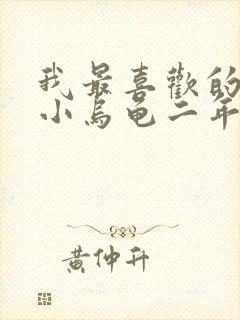 我最喜歡的
小烏龟二年
黃仲升